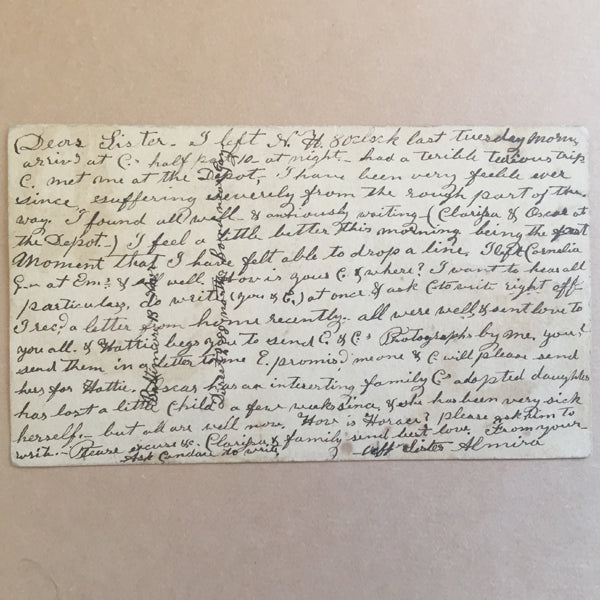 (Dear Sister - I left N. H. 8 oclock last tuesday Morn,
arriv'd at C. half past 10 - at night - had a terible tedious trip
C. met me at the Depot, I have been very feeble ever
since suffering severely from the rough part of the
way. I found all well & anxiously waiting - (Clarisa & Oscar at
the Depot -) I feel a little better this morning being the first
Moment that I have felt able to drop a line, I left Cornelia
at Em. & all well. How is your C. & where? I want to hear all
particulars, do write, (you & C.) at once & ask C to write right off -
I rec'd a letter from home recently. all were well, & sent love to
you all. & Hattie begs you to send E. & C's Photographs by me, you?
send them in a letter to me E. promis'd me one & C. will please send
hers for Hattie. Oscar has an interesting family C's adopted daughter
has lost a little Child a few weeks since, & she has been very sick
herself, - but all are well now. How is Horace? please ask him to
write. - Please excuse &c. Clarisa & family send best love. From your
Ask Candace to write, aff Sister Almira